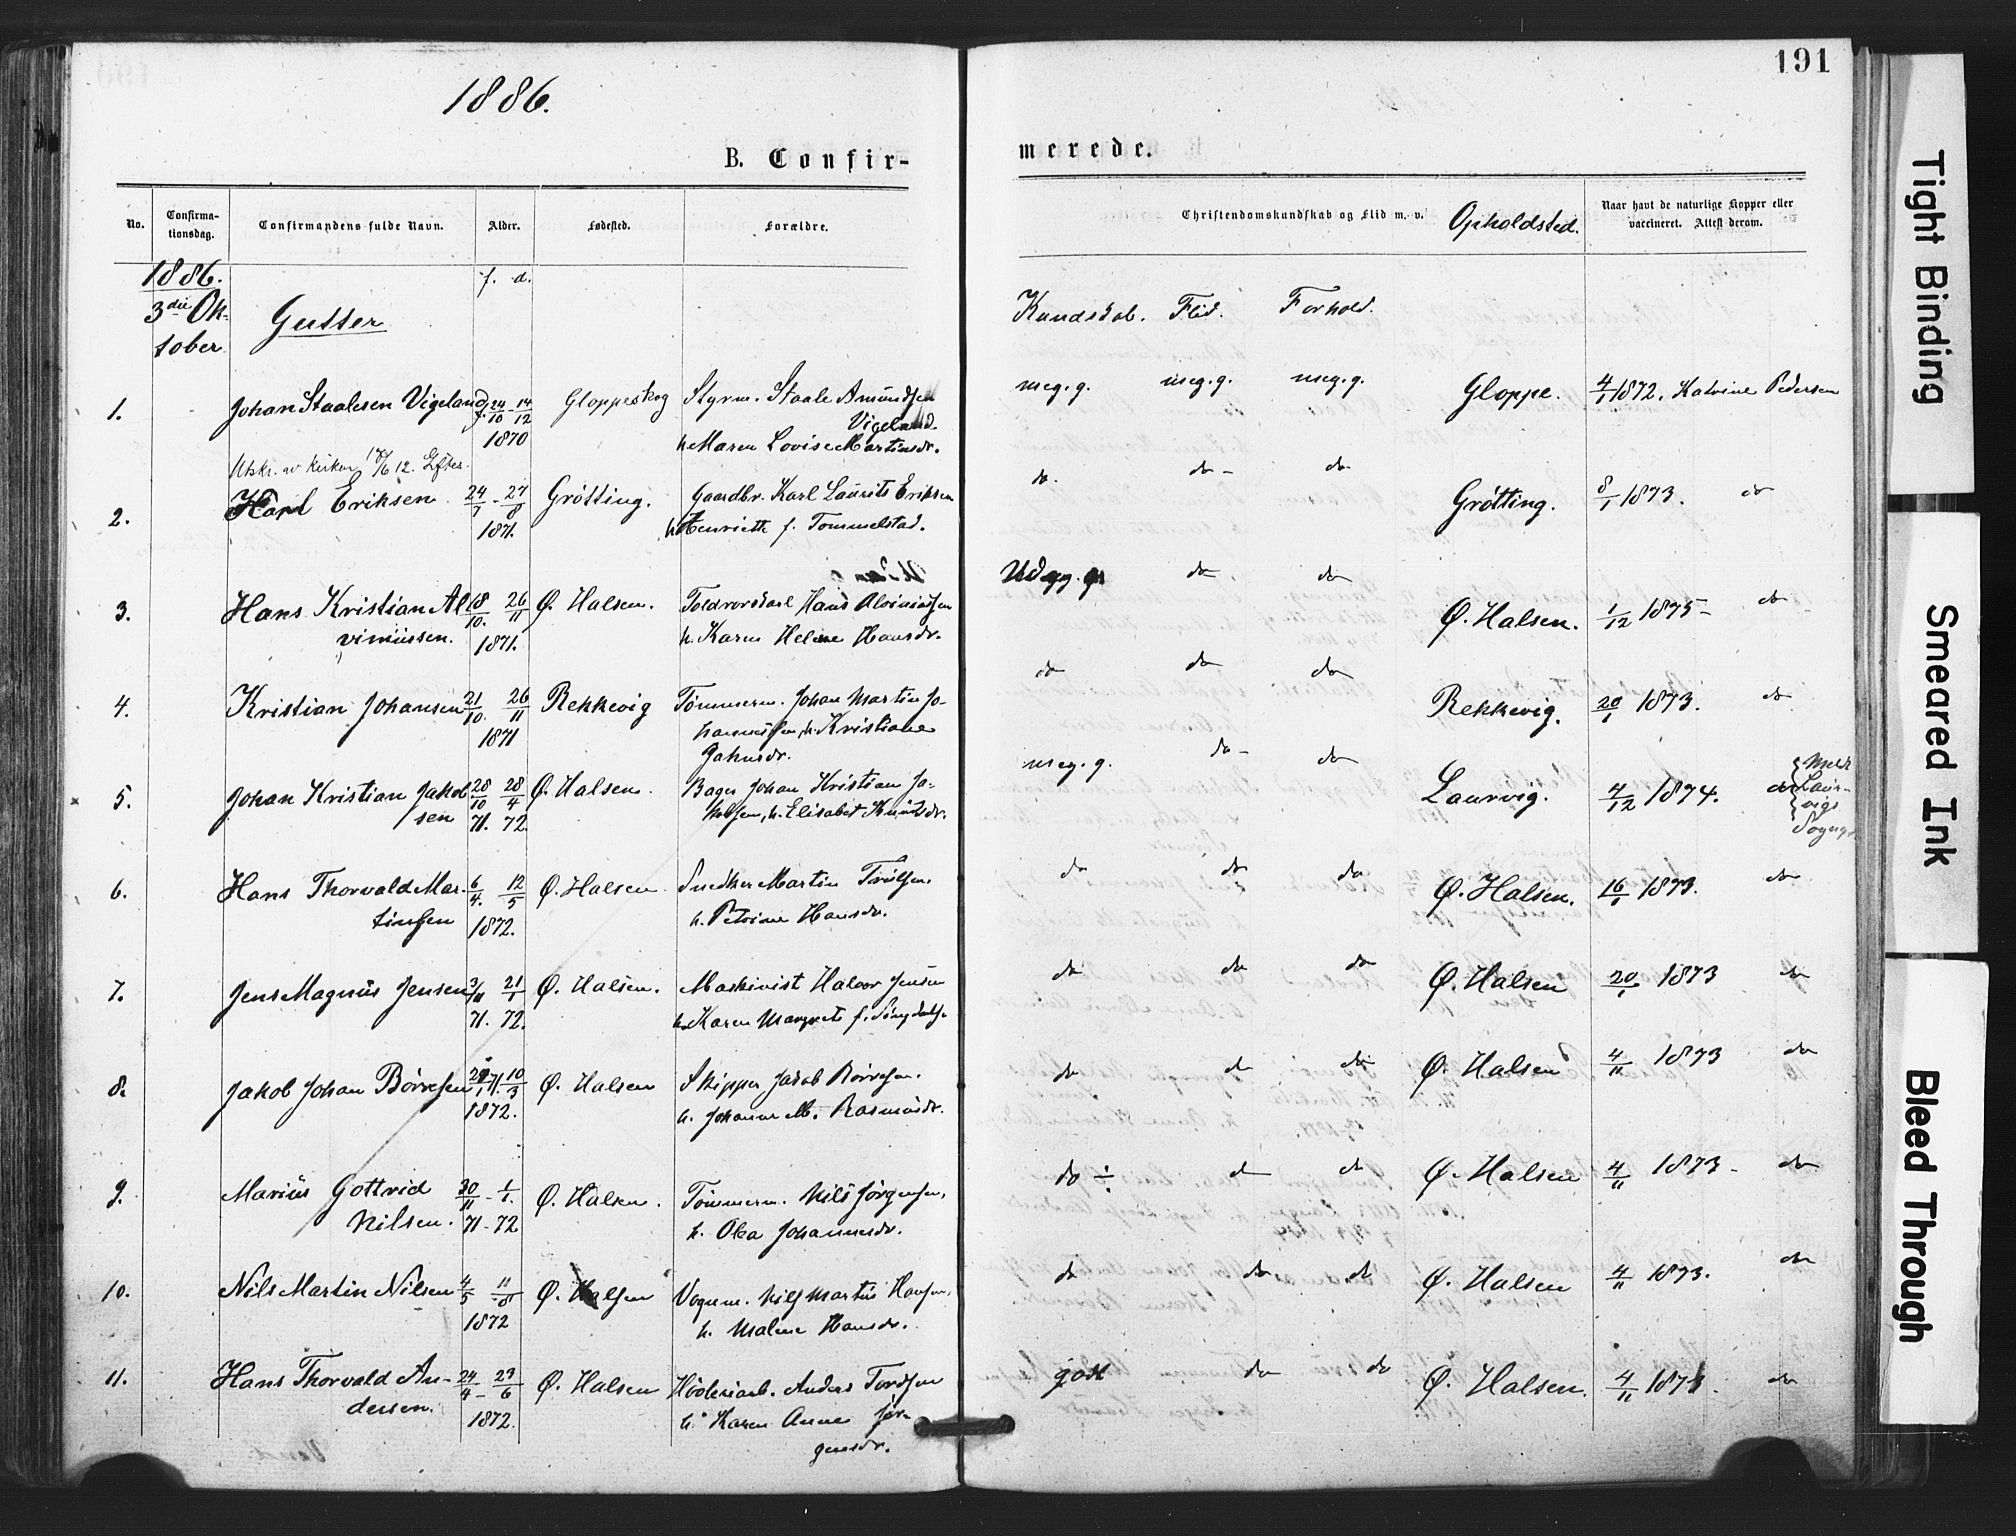 1886.
191
B. Confir-
merede.
No.
Confirma-
tionsdag.
Confirmandens fulde Navn.
Alder.
Fødested.
Forældre.
Christendomskundskab og Flid m. v.
Opholdsted.
Naar havt de naturlige Kopper eller
vaccineret. Attest derom.
1886.
3die Ok-
tober
Gutter
f. d.
Kundskab. Flid. Forhold.
1. Johan Staalesen Vigeland f. 24/10 - 14/12 Gloppeskog Styrm. Staale Amundsen
Vigeland.
1870 h. Maren Lovise Martinsdr.
meg. g. meg. g. meg. g. Gloppe. 4/1 1872. Katrine Pedersen
Utskr. av kirken 18/6 12. Efter.
2. Karl Eriksen 24/7 - 27/8 Grötting. Gaardbr. Karl Laurits Eriksen
1871. h. Henriette f. Tommelstad.
do. do - do Grötting. 8/1 1873. do
3. Hans Kristian Al 18/10. 26/11 Ø. Halsen. Toldrorskarl Hans Alviniusen
viniussen. 1871. h. Karen Helene Hansdr.
Udm. g. do do Ø. Halsen. 1/12 1875 - do
4. Kristian Johansen 21/10. 26/11 Rekkevig Tömmerm. Johan Martin Jo-
1871 hannessen, h. Kristiane
Jahnsdr.
do do do Rekkevig. 20/1 1873. do
5. Johan Kristian Jakob 28/10 28/4 Ø. Halsen. Bager Johan Kristian Ja-
sen 71. 72. kobsen, h. Elisabet Knutsdr.
meg. g. do - do Laurvig. 4/12 1874. do
Meld
Laur-
vigs
Sogn
6. Hans Thorvald Mar- 6/4. 12/5 Ø. Halsen. Snedker Martin Trulsen.
tinsen 1872. h. Petrine Hansdr.
do do do Ø. Halsen. 16/1 1873. do
7. Jens Magnus Jensen 3/11 21/1 Ø. Halsen. Maskinist Halvor Jensen
71. 72. h. Karen Margrete f.
do do do Ø. Halsen 20/1 1873 do
8. Jakob Johan Börresen 10/3 Ø. Halsen Skipper Jakob Börresen.
1872. h. Johanne M. Rasmusdr.
do do do Ø. Halsen 4/11 1873 do
9. Marius Gottfrid 30/11 - 1/1. Ø. Halsen. Tömmerm. Nils Jörgensen,
Nilsen. 71 - 72 h. Olea Johannesdr.
do ÷ do do Ø. Halsen 4/11 1873 - do
10. Nils Martin Nilsen 4/5 11/8 Ø. Halsen Vognm. Nils Martin Hansen,
1872 h. Malene Hansdr.
do do do Ø. Halsen 4/11 1873. do
11. Hans Thorvald An- 24/4 - 23/6 Ø. Halsen Anders Tordsen
dersen. 1872. h. Karen Anne Jör-
gensdr.
godt do do Ø. Halsen. 4/11 1873. do
Tight Binding
Smeared Ink
Bleed Through